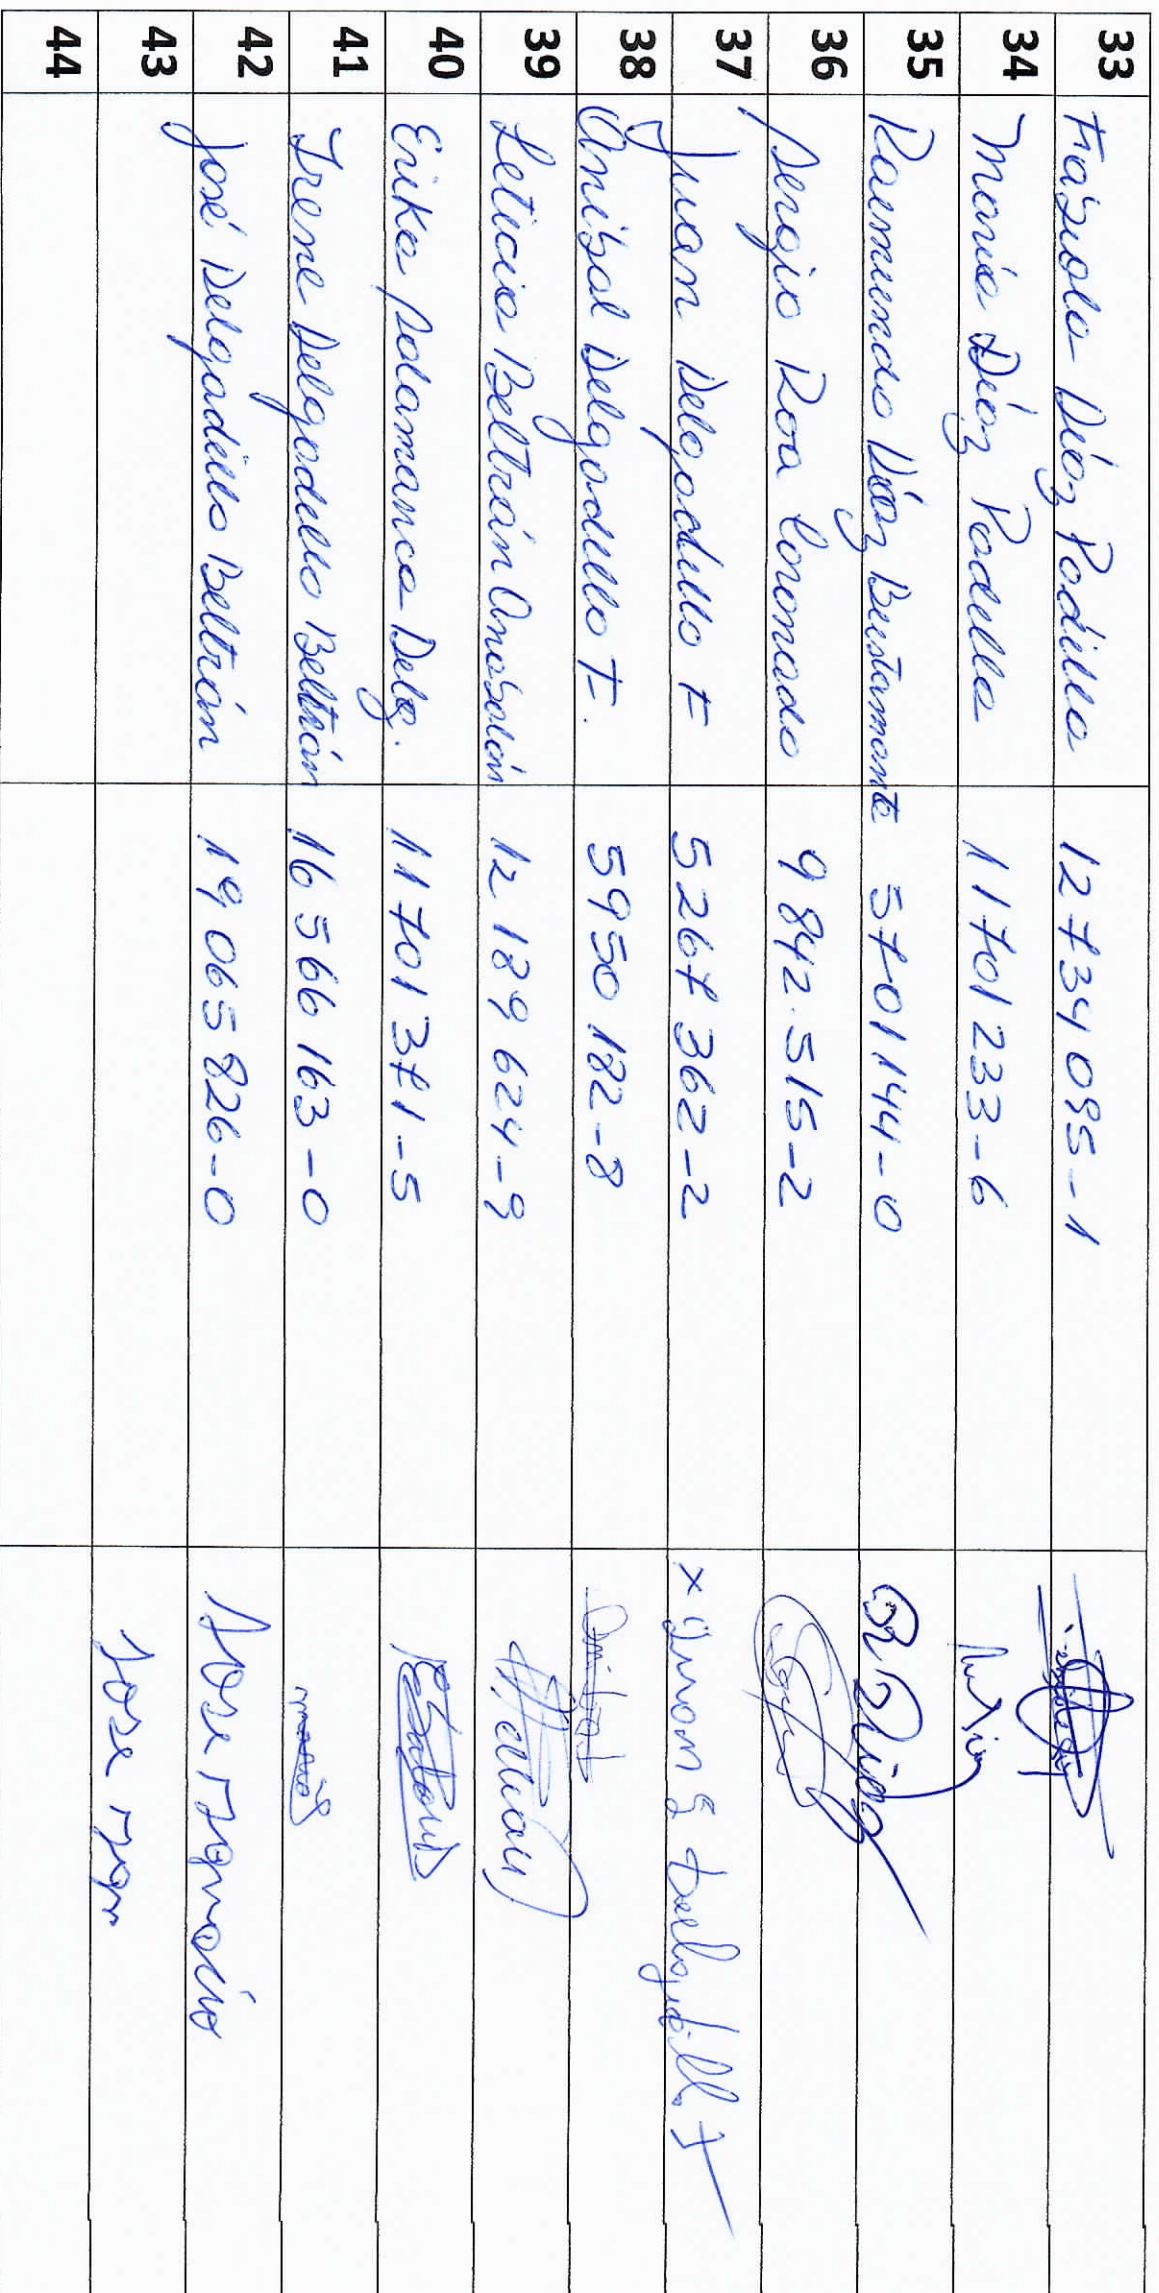 33 Fabiola Díaz Padilla 12734095-1
34 María Díaz Padilla 11701233-6
35 Raimundo Díaz Bustamante 5701144-0
36 Sergio Roa Coronado 9842.515-2
37 Juan Delgadillo F 5267362-2
38 Anibal Delgadillo F. 5950182-8 Anibal
39 Leticia Beltrán 12189624-9
40 Erika Salamanca Delg. 11701371-5
41 Irene Delgadillo Beltrán 16566163-0
42 José Delgadillo Beltrán 19065826-0 Jose Ignacio
43 Jose
44